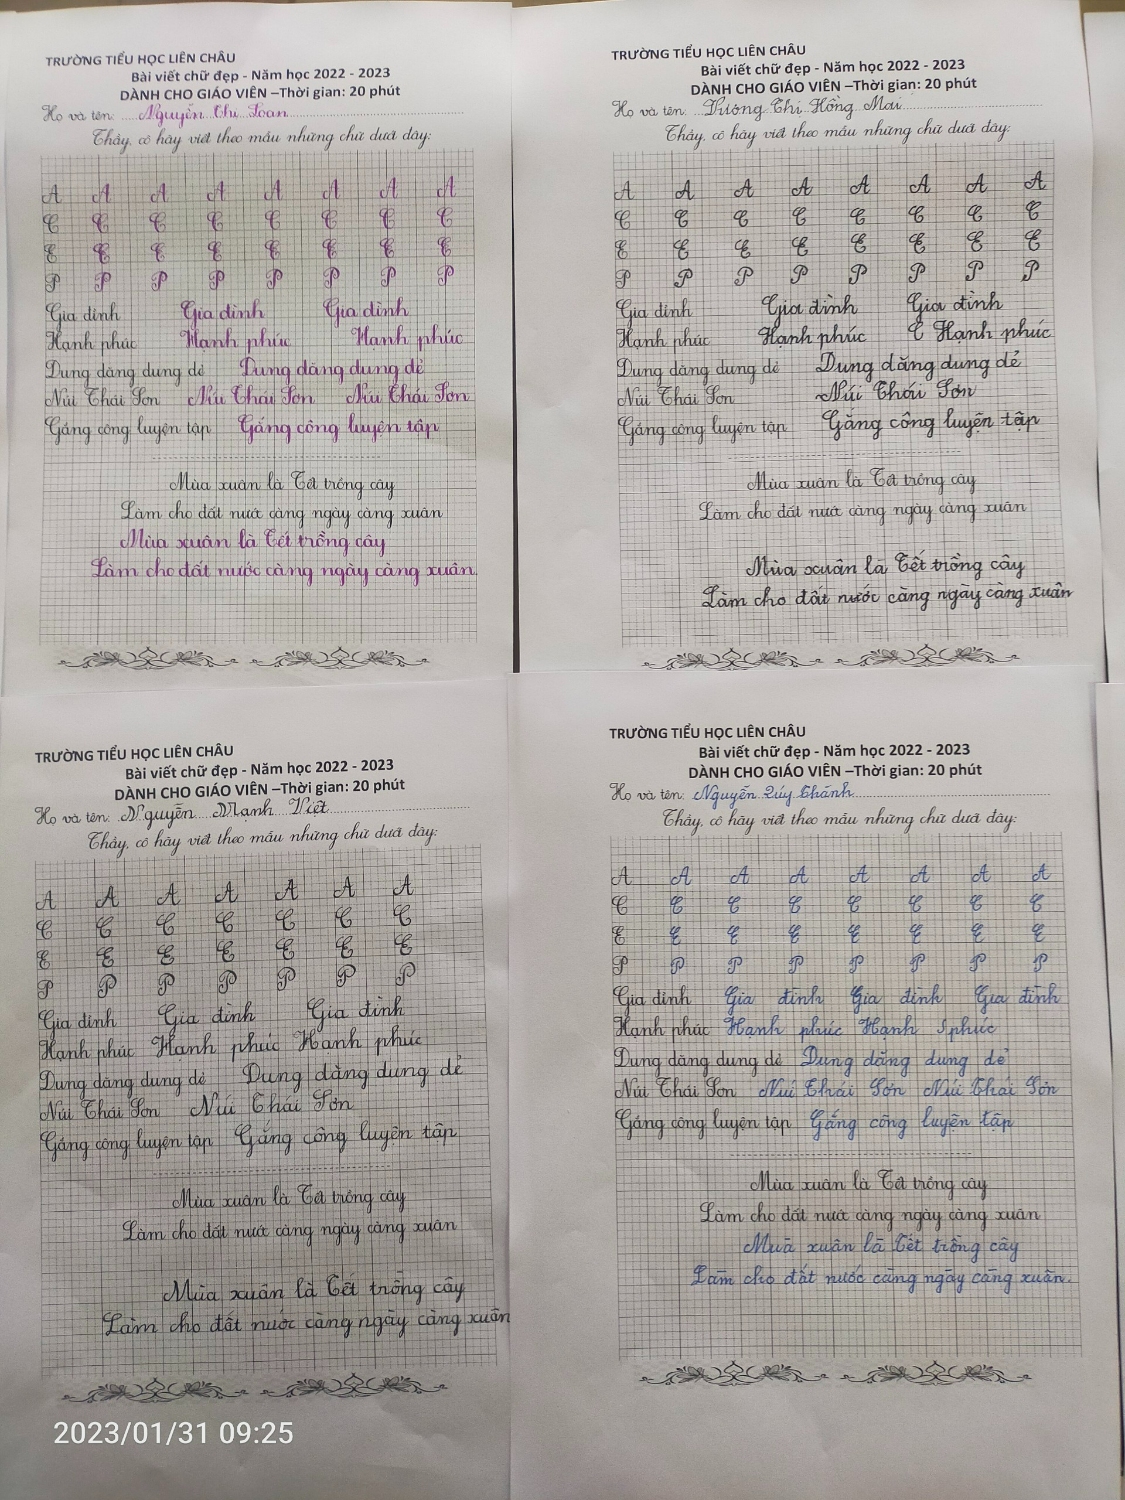 TRƯỜNG TIỂU HỌC LIÊN CHÂU
Bài viết chữ đẹp - Năm học 2022 - 2023
DÀNH CHO GIÁO VIÊN –Thời gian: 20 phút
Họ và tên: Nguyễn Thị Loan
Thầy, cô hãy viết theo mẫu những chữ dưới đây:
A A A A A A A A
C C C C C C C C
E E E E E E E E
P P P P P P P P
Gia đình Gia đình Gia đình
Hạnh phúc Hạnh phúc Hạnh phúc
Dung dăng dung dẻ Dung dăng dung dẻ
Núi Thái Sơn Núi Thái Sơn Núi Thái Sơn
Gắng công luyện tập Gắng công luyện tập
Mùa xuân là Tết trồng cây
Làm cho đất nước càng ngày càng xuân
Mùa xuân là Tết trồng cây
Làm cho đất nước càng ngày càng xuân
TRƯỜNG TIỂU HỌC LIÊN CHÂU
Bài viết chữ đẹp - Năm học 2022 - 2023
DÀNH CHO GIÁO VIÊN –Thời gian: 20 phút
Họ và tên: Dương Thị Hồng Mai
Thầy, cô hãy viết theo mẫu những chữ dưới đây:
A A A A A A A A
C C C C C C C C
E E E E E E E E
P P P P P P P P
Gia đình Gia đình Gia đình
Hạnh phúc Hạnh phúc Hạnh phúc
Dung dăng dung dẻ Dung dăng dung dẻ
Núi Thái Sơn Núi Thái Sơn
Gắng công luyện tập Gắng công luyện tập
Mùa xuân là Tết trồng cây
Làm cho đất nước càng ngày càng xuân
Mùa xuân là Tết trồng cây
Làm cho đất nước càng ngày càng xuân
TRƯỜNG TIỂU HỌC LIÊN CHÂU
Bài viết chữ đẹp - Năm học 2022 - 2023
DÀNH CHO GIÁO VIÊN –Thời gian: 20 phút
Họ và tên: Nguyễn Mạnh Việt
Thầy, cô hãy viết theo mẫu những chữ dưới đây:
A A A A A A A
C C C C C C C
E E E E E E E
P P P P P P P
Gia đình Gia đình Gia đình
Hạnh phúc Hạnh phúc Hạnh phúc
Dung dăng dung dẻ Dung dăng dung dẻ
Núi Thái Sơn Núi Thái Sơn
Gắng công luyện tập Gắng công luyện tập
Mùa xuân là Tết trồng cây
Làm cho đất nước càng ngày càng xuân
Mùa xuân là Tết trồng cây
Làm cho đất nước càng ngày càng xuân
2023/01/31 09:25
TRƯỜNG TIỂU HỌC LIÊN CHÂU
Bài viết chữ đẹp - Năm học 2022 - 2023
DÀNH CHO GIÁO VIÊN –Thời gian: 20 phút
Họ và tên: Nguyễn Quý Khánh
Thầy, cô hãy viết theo mẫu những chữ dưới đây:
A A A A A A A A
C C C C C C C C
E E E E E E E E
P P P P P P P P
Gia đình Gia đình Gia đình Gia đình
Hạnh phúc Hạnh phúc Hạnh phúc
Dung dăng dung dẻ Dung dăng dung dẻ
Núi Thái Sơn Núi Thái Sơn Núi Thái Sơn
Gắng công luyện tập Gắng công luyện tập
Mùa xuân là Tết trồng cây
Làm cho đất nước càng ngày càng xuân
Mùa xuân là Tết trồng cây
Làm cho đất nước càng ngày càng xuân.